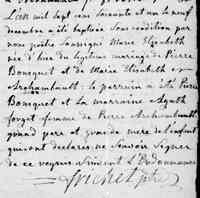 L'an mil sept cens soixante et un le neuf
decembre a été baptisée sous condition par
nous prêtre soussigné Marie Elizabeth
née d'hier du legitime mariage de Pierre
Bousquet et de Marie Elizabeth
Archambault. le parrein a été Pierre
Bousquet et La marraine Agath
forget femme de Pierre Archambault
grand pere et grande mere de l'enfant
qui ont declarés ne Savoir Signer
de ce requis Suivant L'Ordonnance